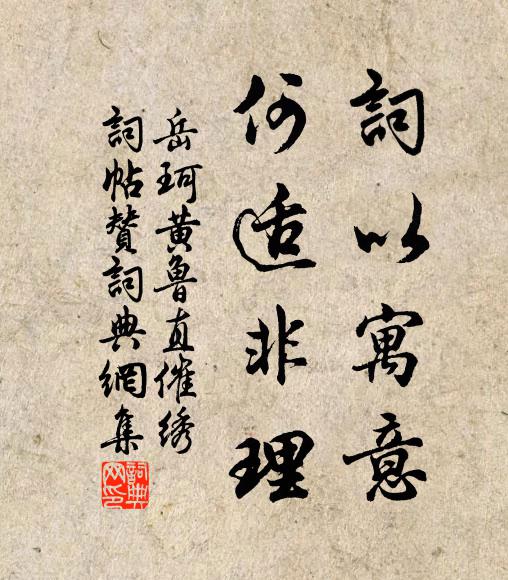 詞以寓意
何適非理
岳珂黄魯直催綉
詞帖贊詞典網集
詞典网印